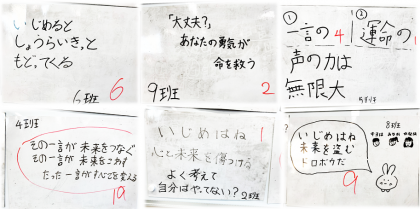 いじめると
しょうらいきっと
もどってくる
6班
6
「大丈夫?」
あなたの勇気が
命を救う
9班
2
① 一言の 4 ② 運命の
声の力は
無限大
5班
4班
その一言が未来をつなぐ
その一言が未来をこわす
たった一言がすべてを変える
19
いじめはね 1
心と未来を傷つける
よく考えて
自分はやってない? 2班
8班
いじめはね
未来を盗む
ドロボウだ
9